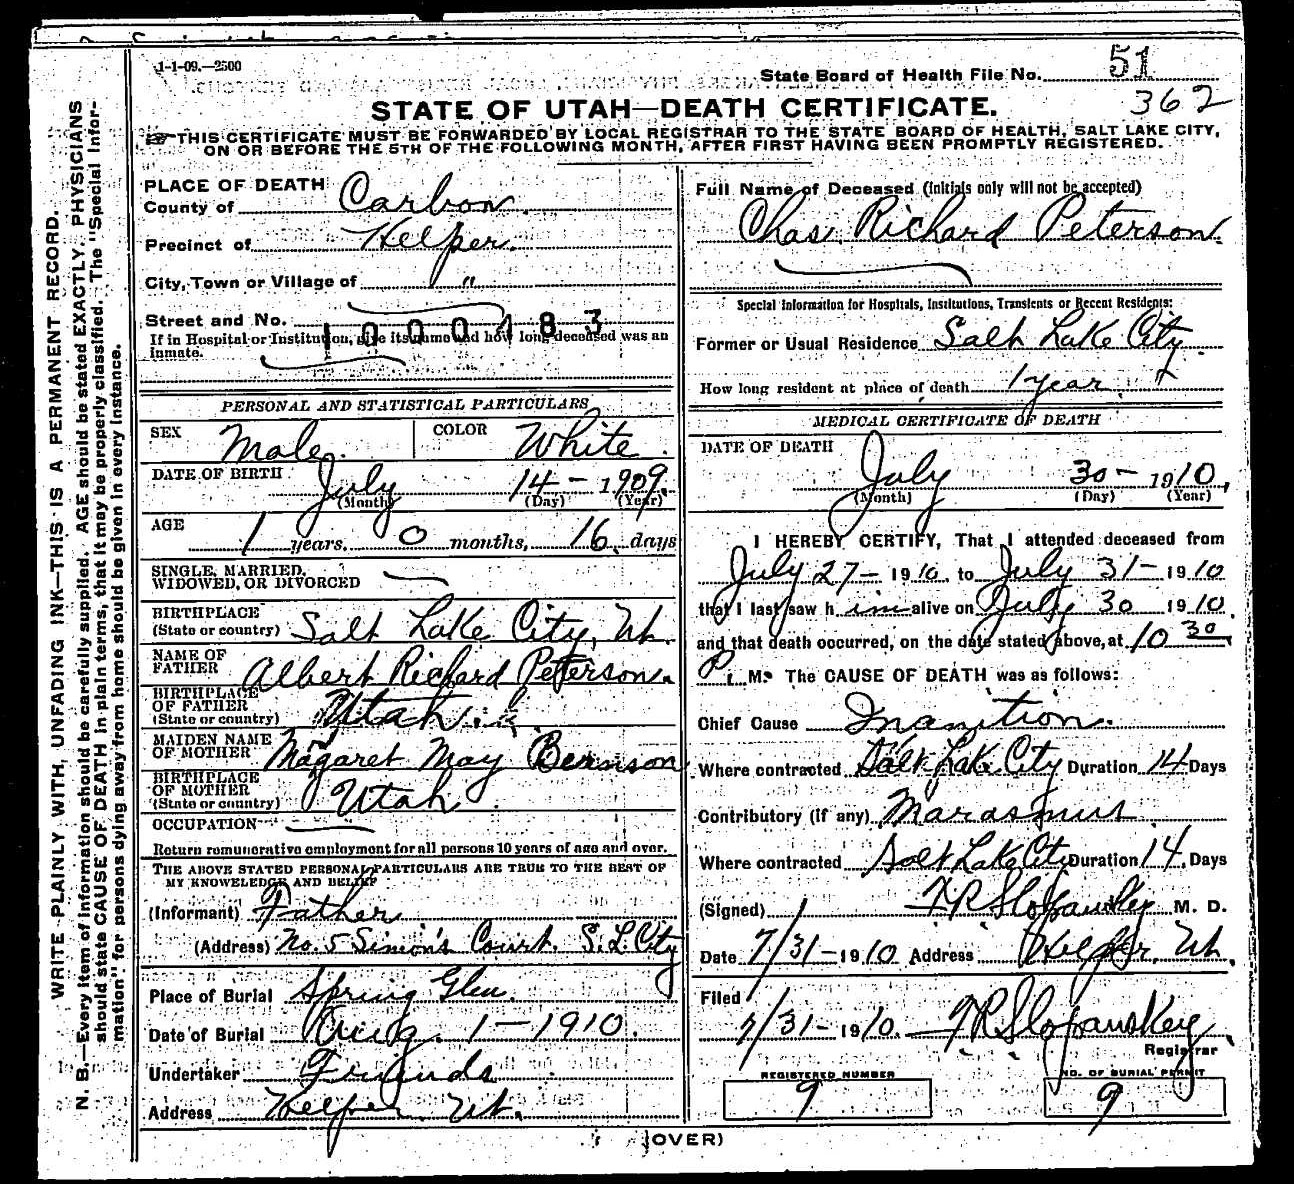 1-1-09.—2500
State Board of Health File No. 51
362
STATE OF UTAH—DEATH CERTIFICATE.
THIS CERTIFICATE MUST BE FORWARDED BY LOCAL REGISTRAR TO THE STATE BOARD OF HEALTH, SALT LAKE CITY,
ON OR BEFORE THE 5TH OF THE FOLLOWING MONTH, AFTER FIRST HAVING BEEN PROMPTLY REGISTERED.
WRITE PLAINLY WITH UNFADING INK—THIS IS A PERMANENT RECORD.
N. B.—Every item of information should be carefully supplied. AGE should be stated EXACTLY. PHYSICIANS
should state CAUSE OF DEATH in plain terms, that it may be properly classified. The "Special Infor-
mation" for persons dying away from home should be given in every instance.
PLACE OF DEATH
County of Carbon
Precinct of Helper.
City, Town or Village of "
Street and No.
1000483
If in Hospital or Institution, give its name and how long deceased was an
inmate.
PERSONAL AND STATISTICAL PARTICULARS
SEX Male. COLOR White.
DATE OF BIRTH July 14 - 1909.
(Month) (Day) (Year)
AGE 1 years, 0 months, 16 days
SINGLE, MARRIED,
WIDOWED, OR DIVORCED
BIRTHPLACE
(State or country) Salt Lake City, Ut.
NAME OF
FATHER Albert Richard Peterson.
BIRTHPLACE
OF FATHER
(State or country) Utah.
MAIDEN NAME
OF MOTHER Magaret May Bernson
BIRTHPLACE
OF MOTHER
(State or country) Utah
OCCUPATION
Return remunerative employment for all persons 10 years of age and over.
THE ABOVE STATED PERSONAL PARTICULARS ARE TRUE TO THE BEST OF
MY KNOWLEDGE AND BELIEF
(Informant) Father
(Address) No. 5 Simon's Court. S.L. City
Place of Burial Spring Glen.
Date of Burial Aug. 1 — 1910.
Undertaker Friends
Address Helper Ut.
Full Name of Deceased (Initials only will not be accepted)
Chas Richard Peterson.
Special Information for Hospitals, Institutions, Transients or Recent Residents:
Former or Usual Residence Salt Lake City
How long resident at place of death 1 year
MEDICAL CERTIFICATE OF DEATH
DATE OF DEATH
July 30 - 1910,
(Month) (Day) (Year)
I HEREBY CERTIFY, That I attended deceased from
July 27 - 1910, to July 31 - 1910
that I last saw him alive on July 30 1910,
and that death occurred, on the date stated above, at 10 30
P. M. The CAUSE OF DEATH was as follows:
Chief Cause Inanition.
Where contracted Salt Lake City Duration 14 Days
Contributory (If any) Marasmus
Where contracted Salt Lake City Duration 14 Days
(Signed) F R Slopansky M. D.
Date 7/31 - 1910 Address Helper, Ut.
Filed
7/31 - 1910. F R Slopanskey
Registrar
REGISTERED NUMBER
9
NO. OF BURIAL PERMIT
9
(OVER)